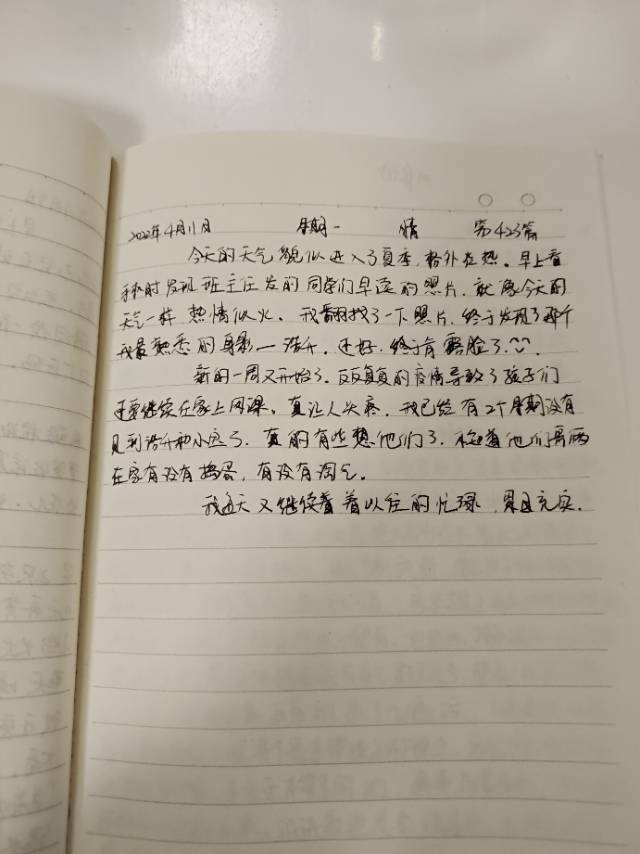 2022年4月11日 星期一 晴 第423篇
今天的天气貌似进入了夏季，格外在热。早上看
手机时发现班主任发的同学们早读的照片，就像今天的
天气一样热情似火。我翻找了一下照片，终于发现了那个
我最熟悉的身影—浩升。还好，终于有露脸了.
新的一周又开始了。反反复复的疫情导致了孩子们
还要继续在家上网课。真让人头疼。我已经有2个星期没有
见到浩升和小宝了。真的有些想他们了。不知道他们哥俩
在家有没有捣蛋，有没有淘气。
我这天又继续着以往的忙碌，累且充实.